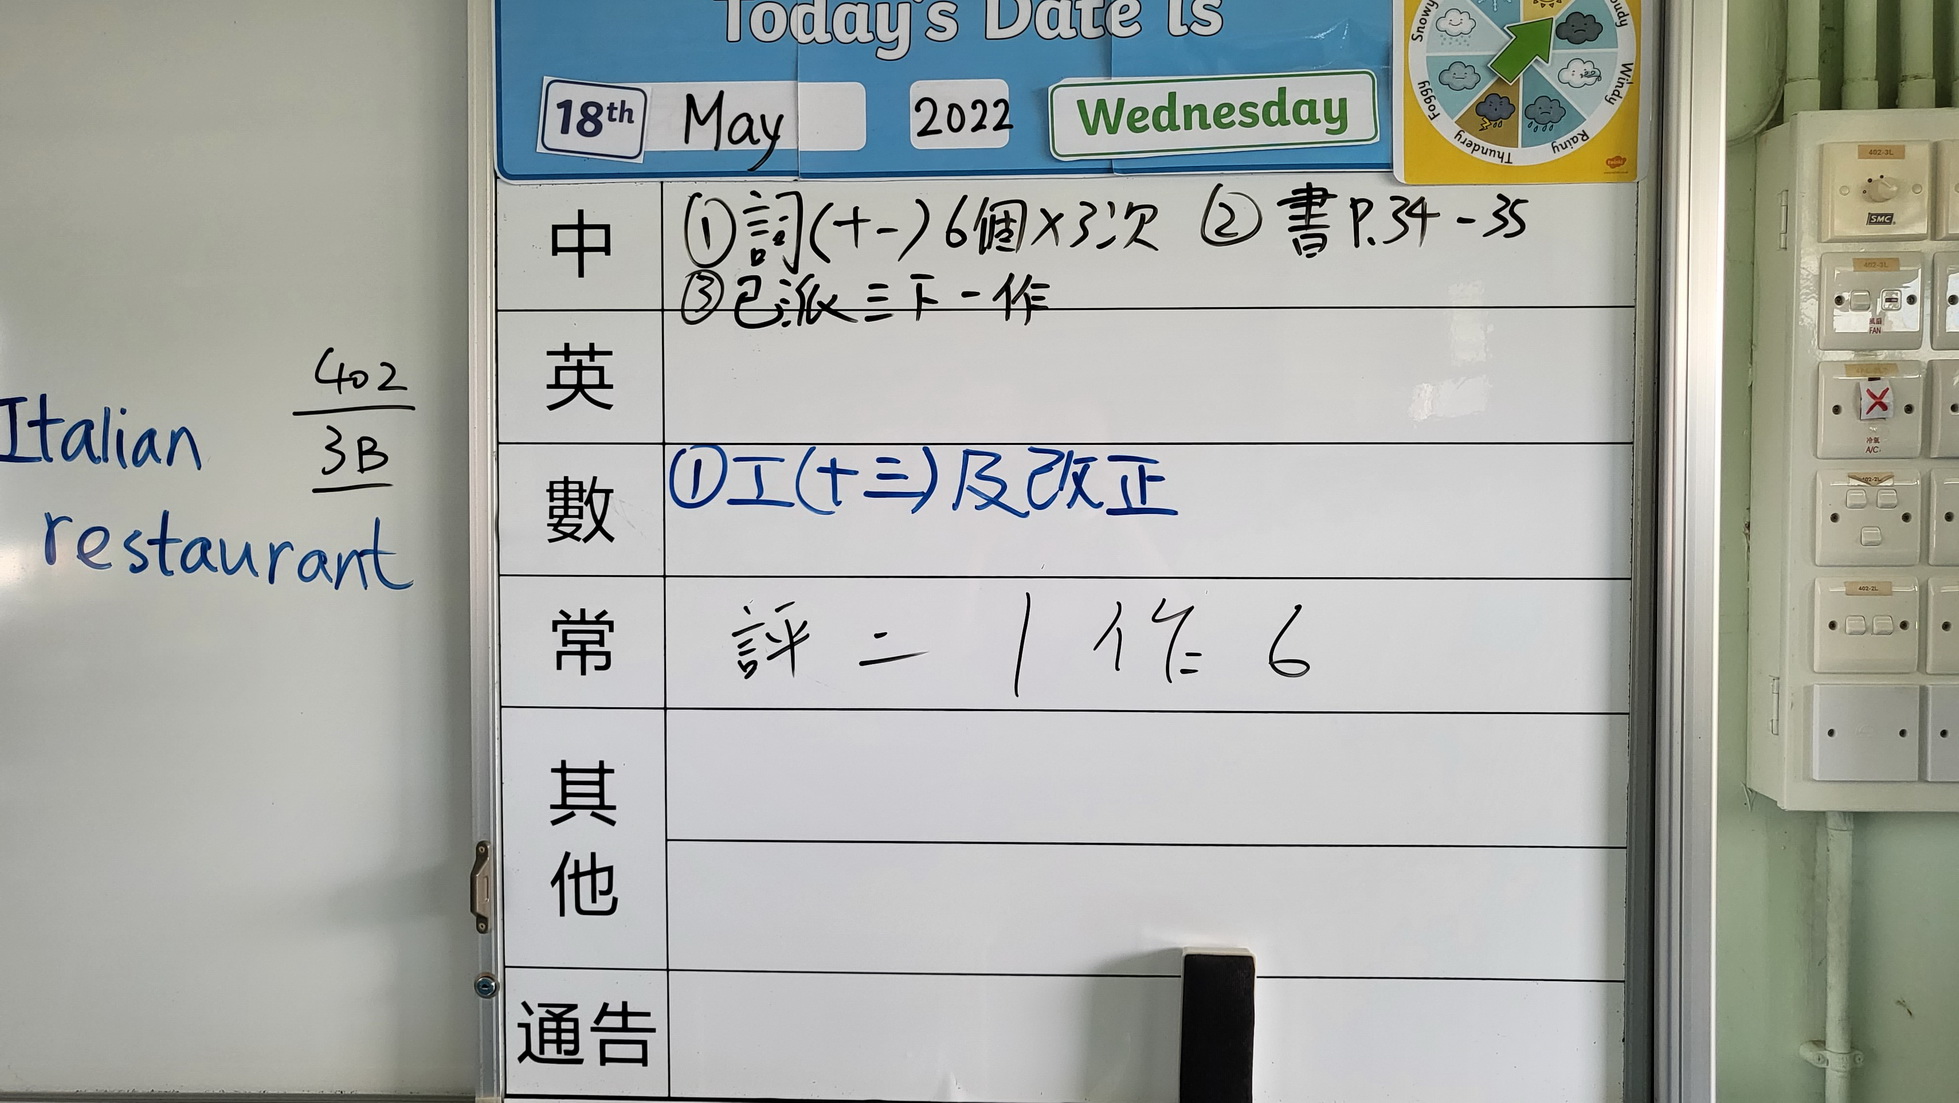 Today's Date is
18th May 2022 Wednesday
Snowy
Cloudy
Windy
Rainy
Thundery
Foggy
中 ①詞(十一)6個×3次 ②書P.34-35
③已派三下一作
英
數 ①工(十三)及改正
常 評二 | 作6
其他
通告
402
3B
Italian
restaurant
402-3L
SMC
402-3L
風扇
FAN
冷氣
A/C
402-2L
402-2L